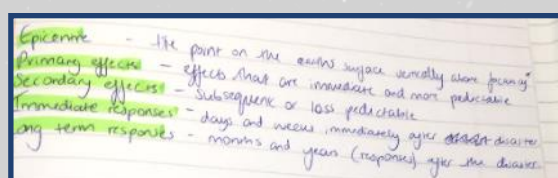 Epicentre - the point on the earths surface vertically above focus
Primary effects - effects that are immediate and more predictable
Secondary effects - subsequent or less predictable
Immediate responses - days and weeks immediately after disaster
ong term responses - months and years (responses) after the disaster